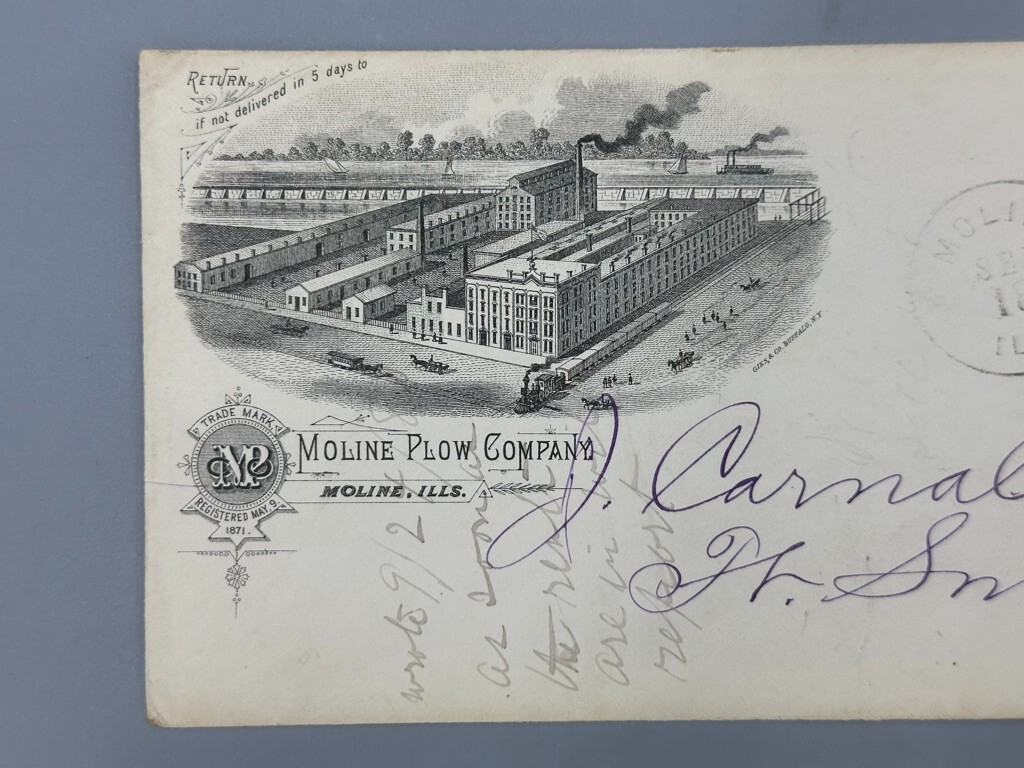 RETURN
if not delivered in 5 days to
GIES & CO. BUFFALO, N.Y.
MOLI
SE
18
IL
TRADE MARK.
MP
REGISTERED MAY. 9.
1871.
MOLINE PLOW COMPANY.
MOLINE, ILLS.
J. Carnal
Ft. Sm
wrote 9/2
as soon as
the
are in
report